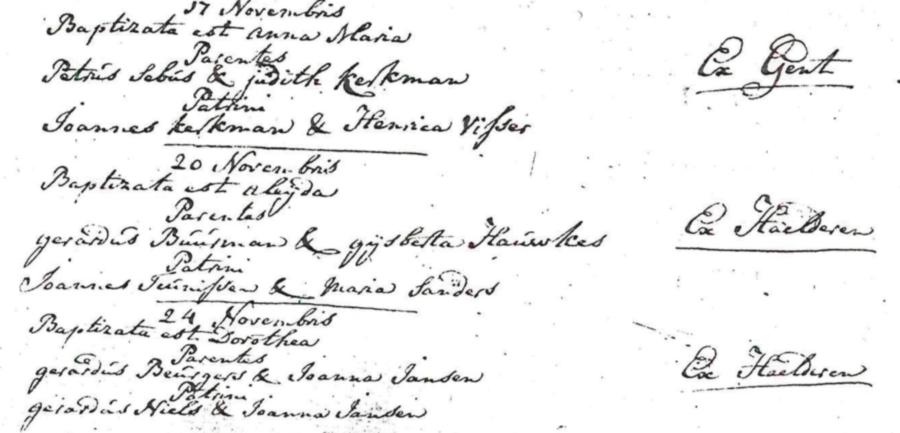 17 Novembris
Baptizata est anna Maria
Parentes
Petrus Sebus & judith kerkman
Ex Gent
Patrini
Joannes kerkman & Henrica Visser
20 Novembris
Baptizata est aleyda
Parentes
gerardus Buurman & gysberta Hauwkes
Ex Haelderen
Patrini
Joannes Teunissen & Maria Sanders
24 Novembris
Baptizata est Dorothea
Parentes
gerardus Beurgers & Joanna Jansen
Ex Haelderen
Patrini
gerardus Niels & Joanna Jansen